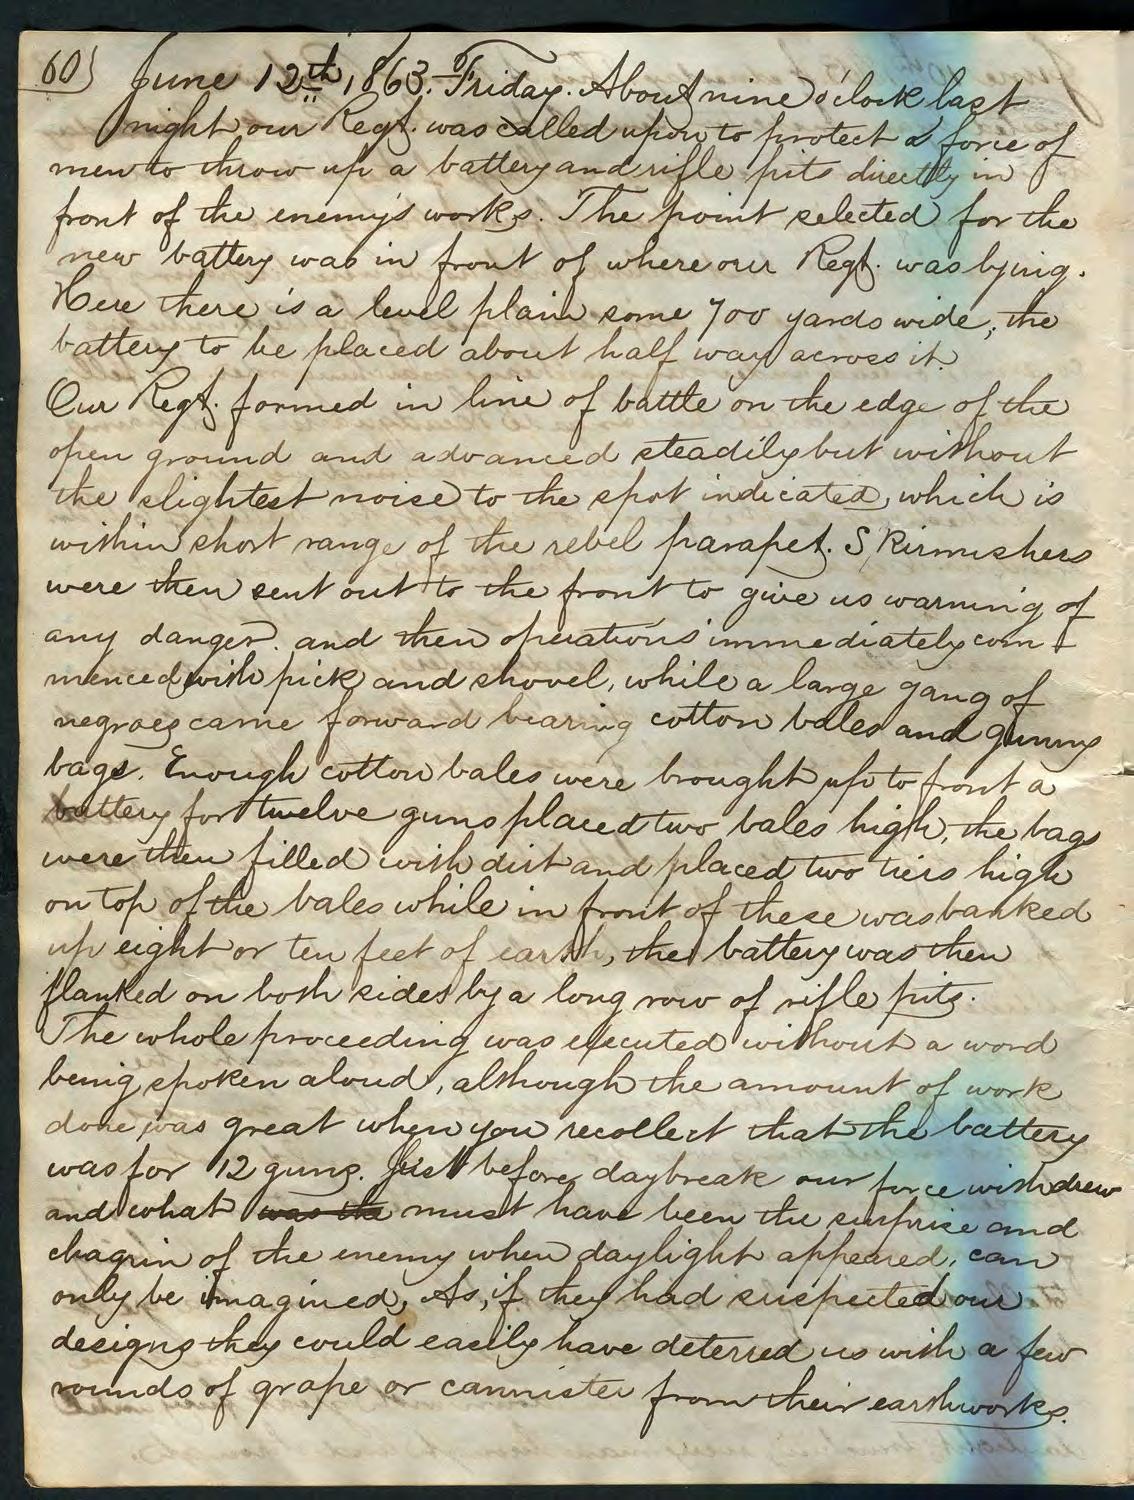 60) June 12th, 1863. Friday. About nine o'clock last
night our Regt. was called upon to protect a force of
men to throw up a battery and rifle pits directly in
front of the enemy's works. The point selected for the
new battery was in front of where our Regt. was lying.
Here there is a level plain some 700 yards wide, the
battery to be placed about half way across it.
Our Regt. formed in line of battle on the edge of the
open ground and advanced steadily but without
the slightest noise to the spot indicated, which is
within short range of the rebel parapet. Skirmishers
were then sent out to the front to give us warning of
any danger. and then operations immediately com
menced with pick and shovel, while a large gang of
negroes came forward bearing cotton bales and gunny
bags. Enough cotton bales were brought up to front a
battery for twelve guns placed two bales high, the bags
were then filled with dirt and placed two tiers high
on top of the bales while in front of these was banked
up eight or ten feet of earth, the battery was then
flanked on both sides by a long row of rifle pits.
The whole proceeding was executed without a word
being spoken aloud, although the amount of work
done was great when you recollect that the battery
was for 12 guns. Just before daybreak our force withdrew
and what was the must have been the surprise and
chagrin of the enemy when daylight appeared, can
only be imagined, As, if they had suspected our
designs they could easily have deterred us with a few
rounds of grape or cannister from their earthworks.